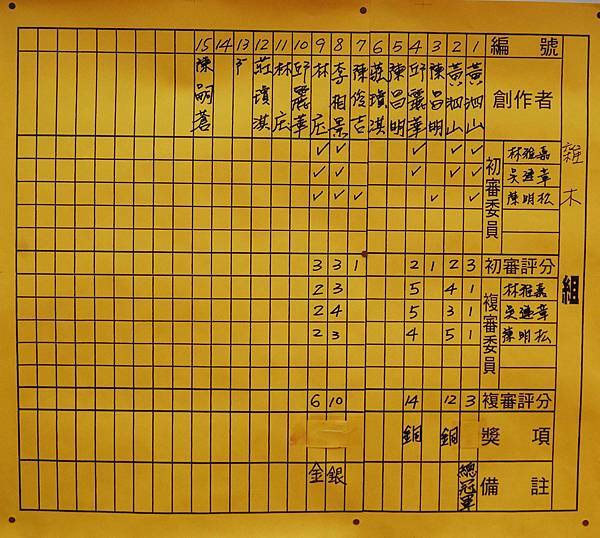 雜木
組
編號 1 2 3 4 5 6 7 8 9 10 11 12 13 14 15
創作者 黃泗山 黃泗山 陳昌明 邱麗華 陳昌明 莊瓊淇 陳俊吉 李相景 林庄 邱麗華 林庄 莊瓊淇 陳嗣蒼
初審委員
林雅嘉 ✓ ✓ ✓ ✓ ✓
吳建葦 ✓ ✓ ✓ ✓ ✓
陳明松 ✓ ✓ ✓ ✓ ✓
初審評分 3 2 1 2 1 3 3
複審委員
林雅嘉 1 4 5 3 2
吳建葦 1 3 5 4 2
陳明松 1 5 4 3 2
複審評分 3 12 14 10 6
獎項 銅 銅
備註 總冠軍 銀 金